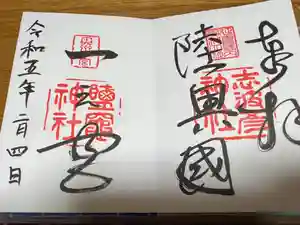 奉拝
志波彦神社
陸奥國
一之宮
鹽竈神社
令和五年二月四日